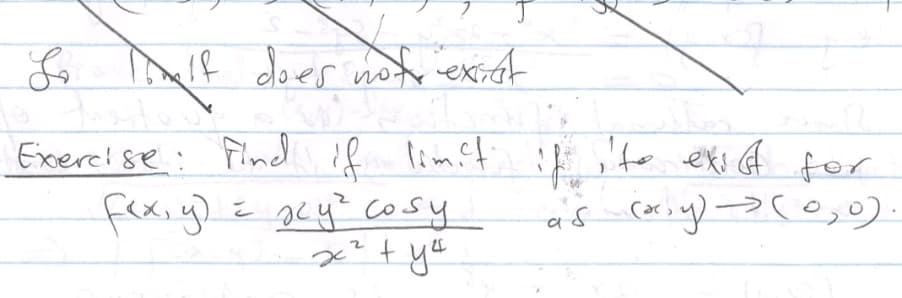 So limit does not exist
Exercise: Find if limit if its exist for
f(x,y) = xy² cosy / x² + y⁴ as (x,y) → (0,0).